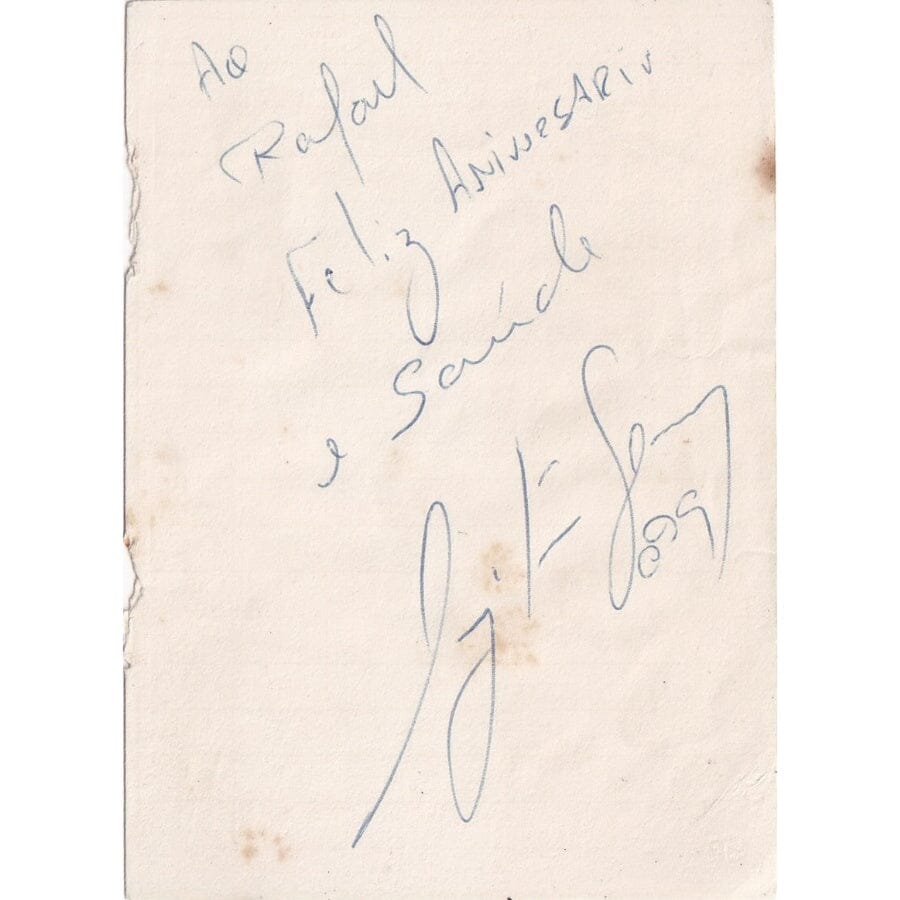 Ao
Rafael
Feliz Anivesario
e Saúde